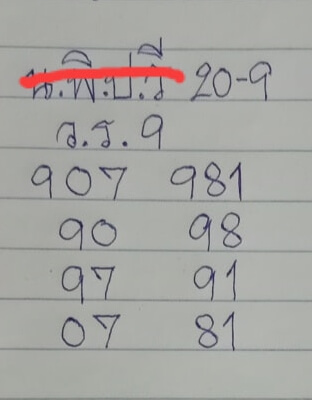 น.พิ.ป.วี 20-9
ว.ร. 9
907 981
90 98
97 91
07 81